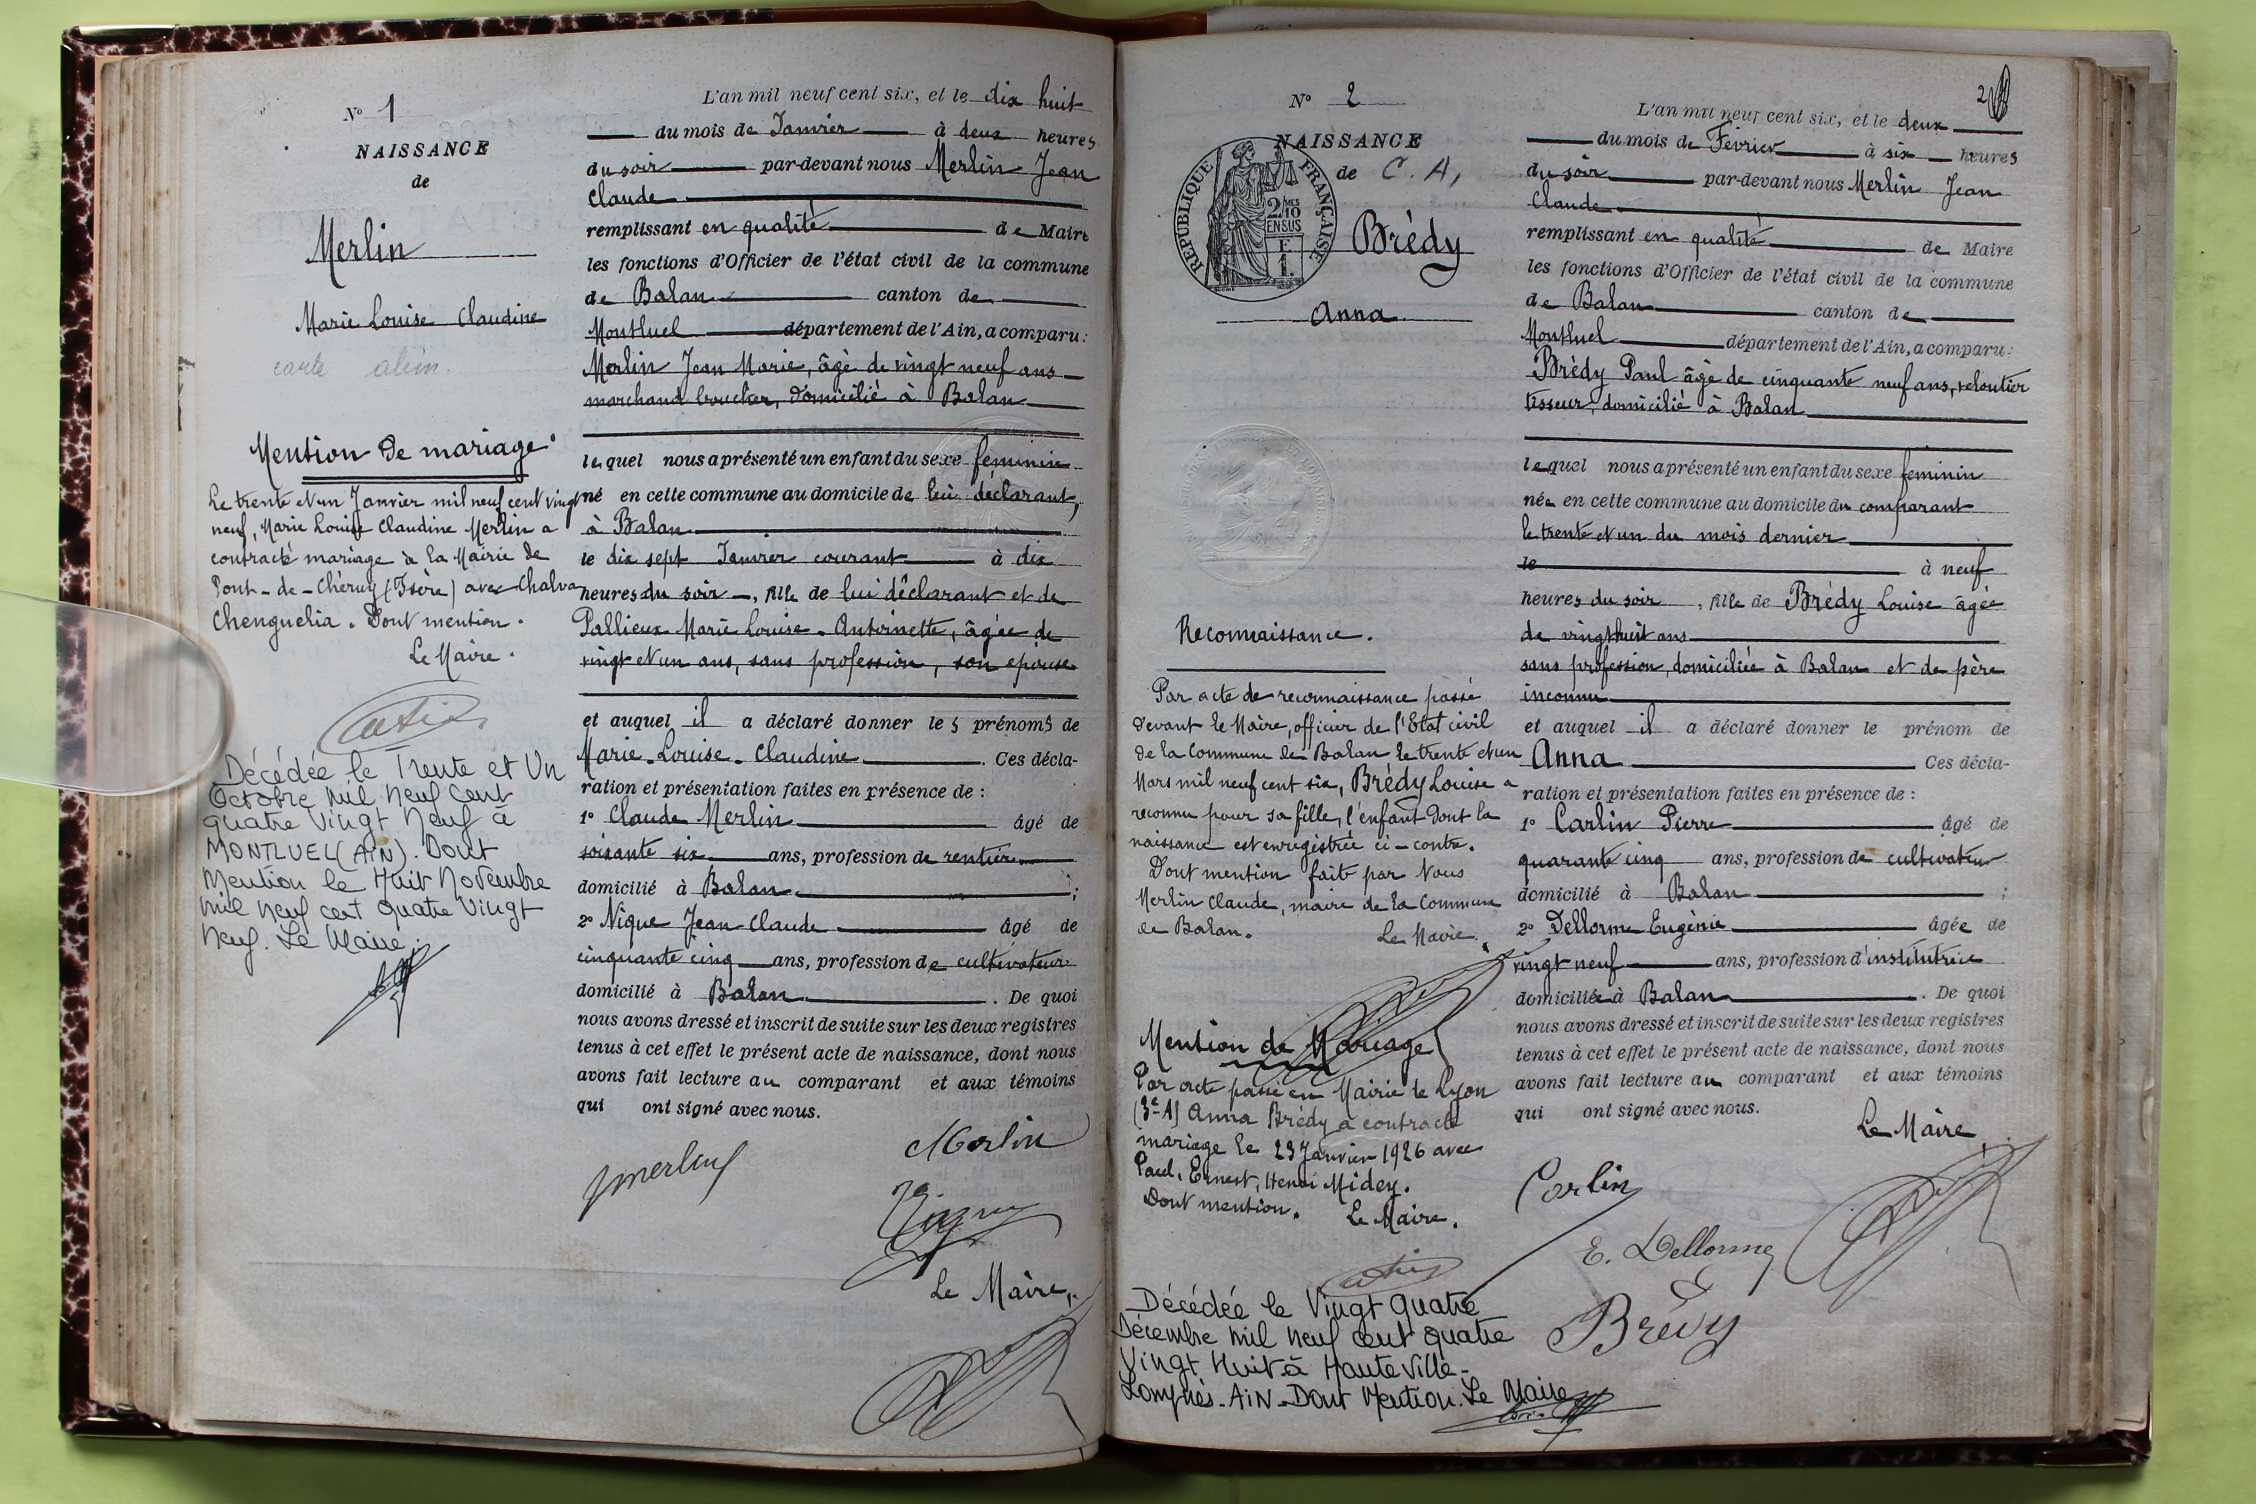 Nº 1
NAISSANCE
de
Merlin
Marie Louise Claudine
carte alim.
Mention de mariage.
Le trente et un Janvier mil neuf cent vingt
neuf, Marie Louise Claudine Merlin a
contracté mariage à la Mairie de
Pont-de-Chéruy (Isère) avec Chalva
Chenguelia. Dont mention.
Le Maire.
Décédée le Trente et Un
Octobre mil neuf cent
quatre vingt neuf à
MONTLUEL (AIN). Dont
Mention le Huit Novembre
mil neuf cent quatre vingt
neuf. Le Maire.
L'an mil neuf cent six, et le dix huit
du mois de Janvier à deux heures
du soir par-devant nous Merlin Jean
Claude
remplissant en qualité de Maire
les fonctions d'Officier de l'état civil de la commune
de Balan canton de
Montluel département de l'Ain, a comparu:
Merlin Jean Marie, âgé de vingt neuf ans
marchand boucher, domicilié à Balan
lequel nous a présenté un enfant du sexe féminin
né en cette commune au domicile de lui déclarant,
à Balan
le dix sept Janvier courant à dix
heures du soir, fille de lui déclarant et de
Pallieux Marie Louise Antoinette, âgée de
vingt et un ans, sans profession, son épouse
et auquel il a déclaré donner les prénoms de
Marie-Louise-Claudine. Ces décla-
ration et présentation faites en présence de :
1º Claude Merlin âgé de
soixante six ans, profession de rentier
domicilié à Balan ;
2º Nique Jean Claude âgé de
cinquante cinq ans, profession de cultivateur
domicilié à Balan. De quoi
nous avons dressé et inscrit de suite sur les deux registres
tenus à cet effet le présent acte de naissance, dont nous
avons fait lecture au comparant et aux témoins
qui ont signé avec nous.
Merlin
Jmerlin
Nique
Le Maire,
2
Nº 2
NAISSANCE
de C. A,
RÉPUBLIQUE FRANÇAISE
2/10 MES
EN SUS
1 F.
Brédy
Anna
Reconnaissance.
Par acte de reconnaissance passé
devant le Maire, officier de l'Etat civil
de la Commune de Balan le trente et un
Mars mil neuf cent six, Brédy Louise a
reconnu pour sa fille, l'enfant dont la
naissance est enregistrée ci-contre.
Dont mention faite par Nous
Merlin Claude, maire de la Commune
de Balan. Le Maire.
Mention de Mariage
Par acte passé en Mairie de Lyon
(3e A) Anna Brédy a contracté
mariage le 23 Janvier 1926 avec
Paul, Ernest, Henri Midey.
Dont mention. Le Maire.
Décédée le Vingt Quatre
Décembre mil neuf cent quatre
Vingt Huit à Hauteville-
Lompnès-AIN-Dont Mention. Le Maire
L'an mil neuf cent six, et le deux
du mois de Février à six heures
du soir par-devant nous Merlin Jean
Claude
remplissant en qualité de Maire
les fonctions d'Officier de l'état civil de la commune
de Balan canton de
Montluel département de l'Ain, a comparu:
Brédy Paul âgé de cinquante neuf ans, veloutier
tisseur, domicilié à Balan
lequel nous a présenté un enfant du sexe féminin
née en cette commune au domicile du comparant
le trente et un du mois dernier
le à neuf
heures du soir, fille de Brédy Louise âgée
de vingt huit ans
sans profession, domiciliée à Balan et de père
inconnu
et auquel il a déclaré donner le prénom de
Anna Ces décla-
ration et présentation faites en présence de :
1º Carlin Pierre âgé de
quarante cinq ans, profession de cultivateur
domicilié à Balan ;
2º Dellorme Eugénie âgée de
vingt neuf ans, profession d'institutrice
domiciliée à Balan. De quoi
nous avons dressé et inscrit de suite sur les deux registres
tenus à cet effet le présent acte de naissance, dont nous
avons fait lecture au comparant et aux témoins
qui ont signé avec nous.
Le Maire,
Carlin
E. Dellorme
Brédy